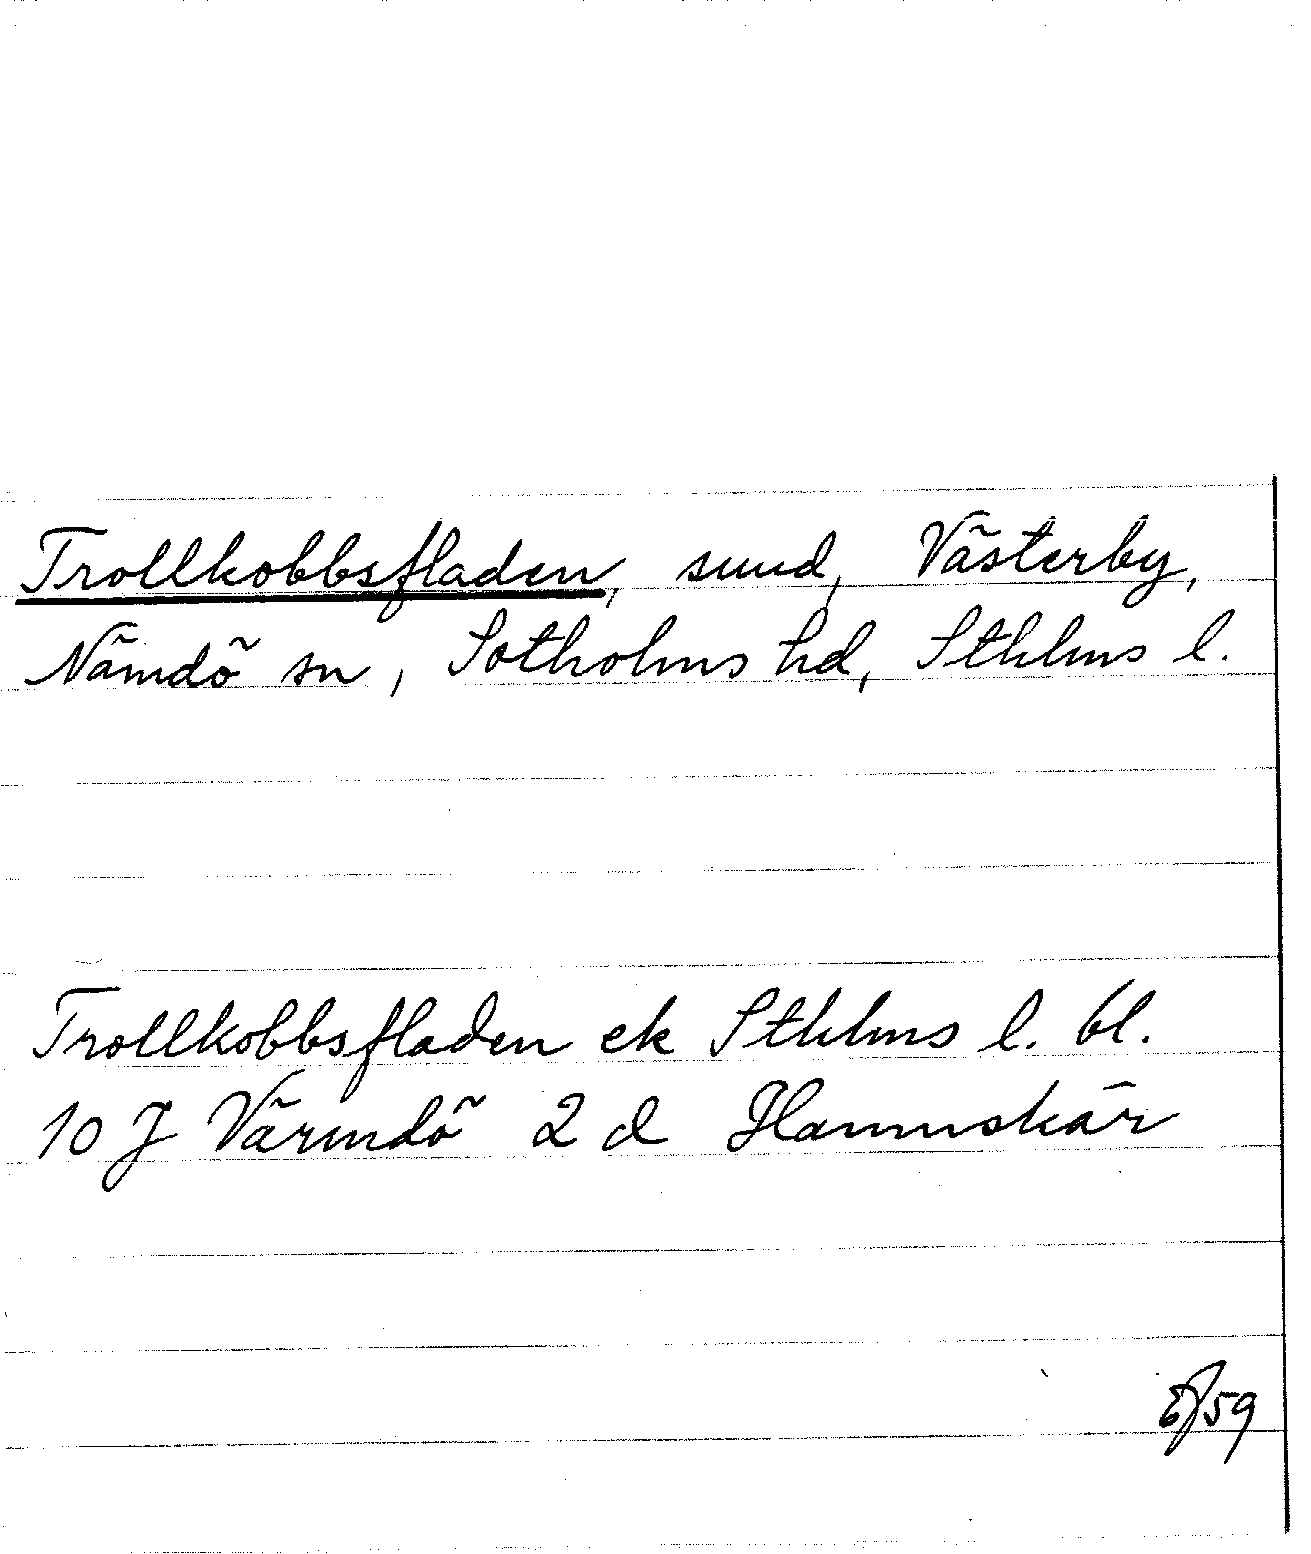 Trollkobbsfladen, sund, Västerby,
Nämdö sn, Sotholms hd, Sthlms l.
Trollkobbsfladen ek Sthlms l. bl.
10 J Värmdö 2 d Hammskär
59